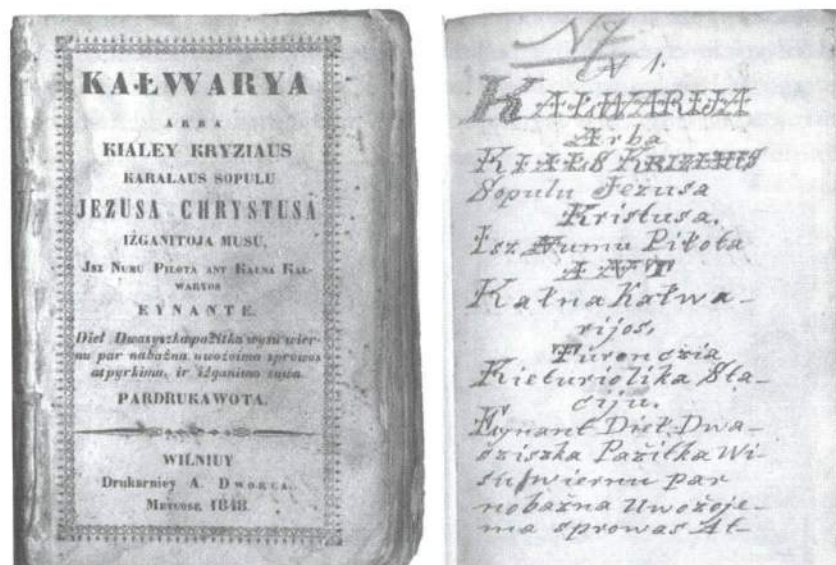 KAŁWARYA
ARBA
KIALEY KRYZIAUS
KARALAUS SOPULU
JEZUSA CHRYSTUSA
IŻGANITOJA MUSU,
JSZ NUMU PILOTA ANT KALNA KAL-
WARYOS
EYNANTE.
Dieł Dwasyszka pażitka wysu wier-
nu par nabażna uwożoima sprowos
atpyrkima, ir iżganima sawa
PARDRUKAWOTA.
WILNIUY
Drukarniey A. DWORCA.
METUOSE 1848
N 1.
KAŁWARIJA
Arba
KIALS KRIZIAUS
Sopulu Jezusa
Kristusa.
Isz Numu Piłota
ANT
Kałna Kałwa-
rijos,
Turenczia
Kieturiolika Sta-
ciju.
Eynant Dieł Dwa-
sziszka Pażitka Wi-
su wiernu par
nobażna Uwożoje-
ma sprowas At-